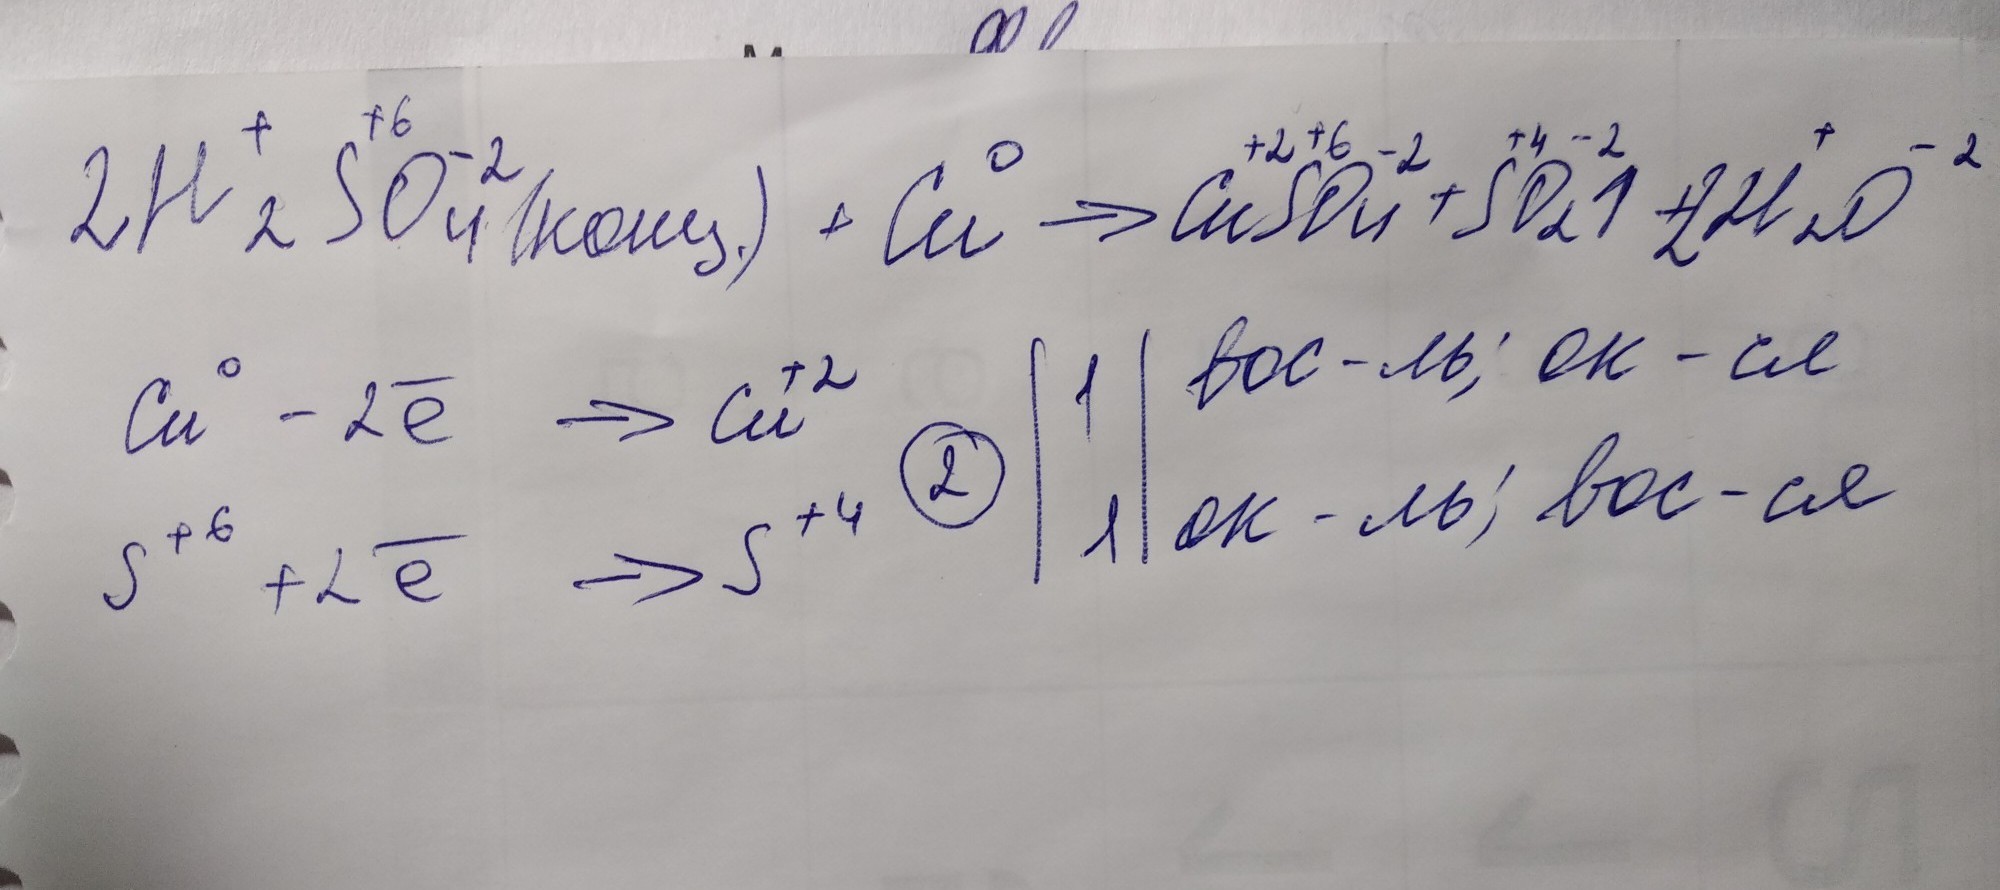 2H⁺₂S⁺⁶O₄⁻²(конц.) + Cu⁰ → Cu⁺²S⁺⁶O₄⁻² + S⁺⁴O₂⁻²↑ + 2H⁺₂O⁻²
Cu⁰ - 2e̅ → Cu⁺² | 1 | вос-ль; ок-ся
②
S⁺⁶ + 2e̅ → S⁺⁴ | 1 | ок-ль; вос-ся